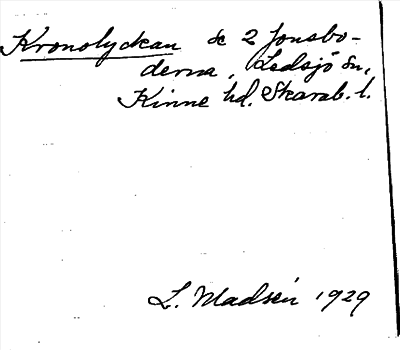 Kronolyckan sc 2 Jonsbo-
derna, Ledsjö sn,
Kinne hd. Skarab. l.
L. Madsén 1929